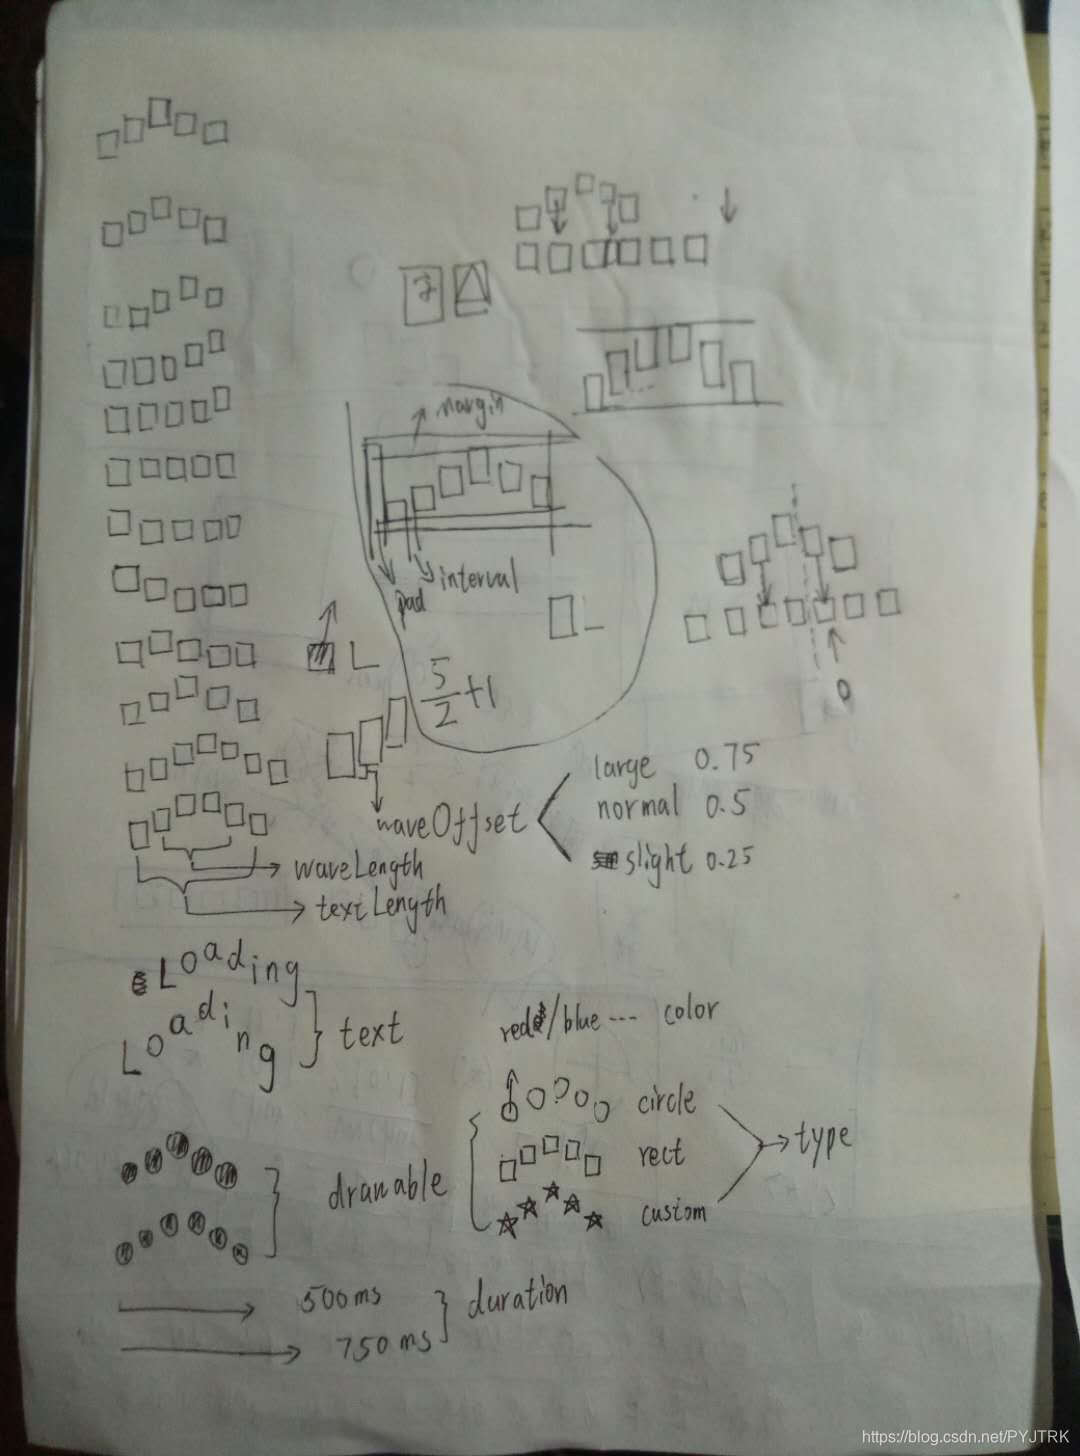 margin
interval
pad
L
L
5/2+1
large 0.75
waveOffset
normal 0.5
slight 0.25
waveLength
textLength
Loading
Loading
text
red/blue --- color
circle
rect
type
drawable
custom
500ms
duration
750ms
https://blog.csdn.net/PYJTRK